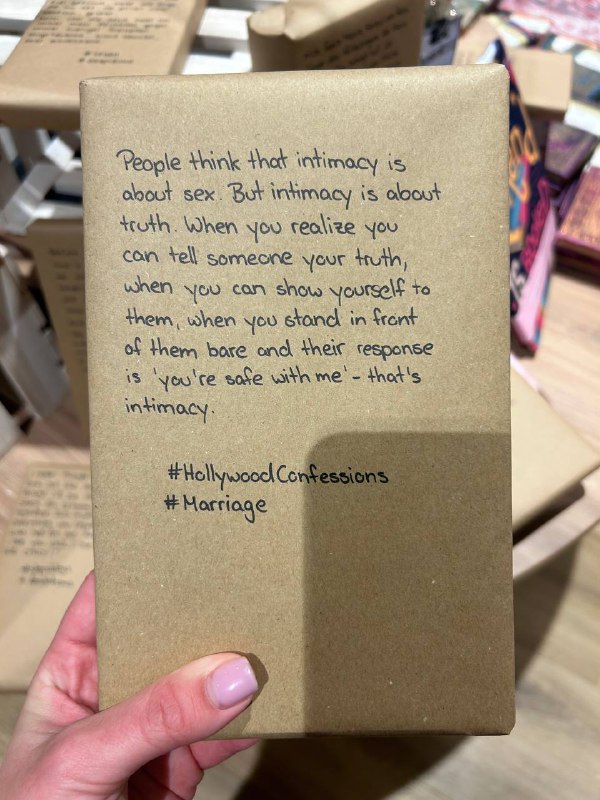 People think that intimacy is
about sex. But intimacy is about
truth. When you realize you
can tell someone your truth,
when you can show yourself to
them, when you stand in front
of them bare and their response
is 'you're safe with me' - that's
intimacy.
#HollywoodConfessions
#Marriage